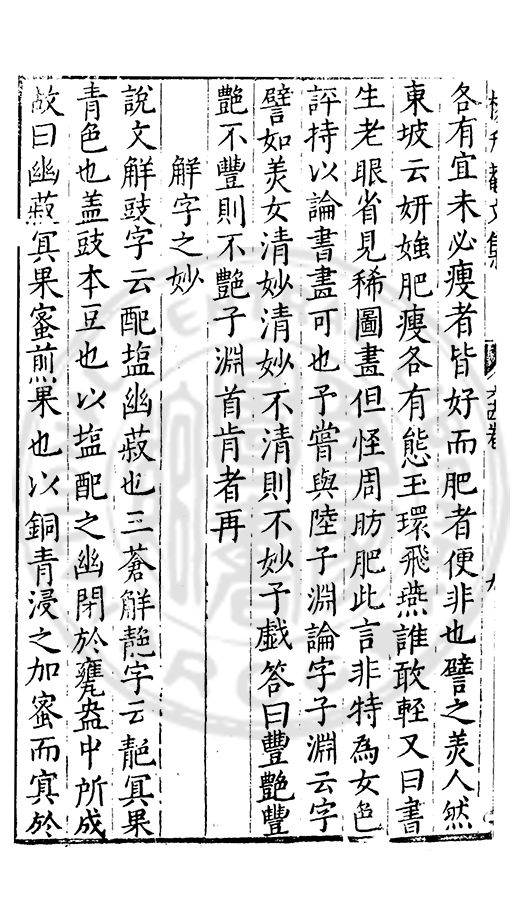 楊升菴文集
各有宜未必瘦者皆好而肥者便非也譬之美人然
東坡云妍媸肥瘦各有態玉環飛燕誰敢輕又曰書
生老眼省見稀圖畫但怪周昉肥此言非特為女色
評持以論書畫可也予嘗與陸子淵論字子淵云字
譬如美女清妙清妙不清則不妙予戲答曰豐艷豐
艷不豐則不艷子淵首肯者再
解字之妙
說文解豉字云配塩幽菽也三蒼解䴄字云䴄冥果
青色也盖豉本豆也以塩配之幽閉於甕盎中所成
故曰幽菽冥果蜜煎果也以銅青浸之加蜜而冥於